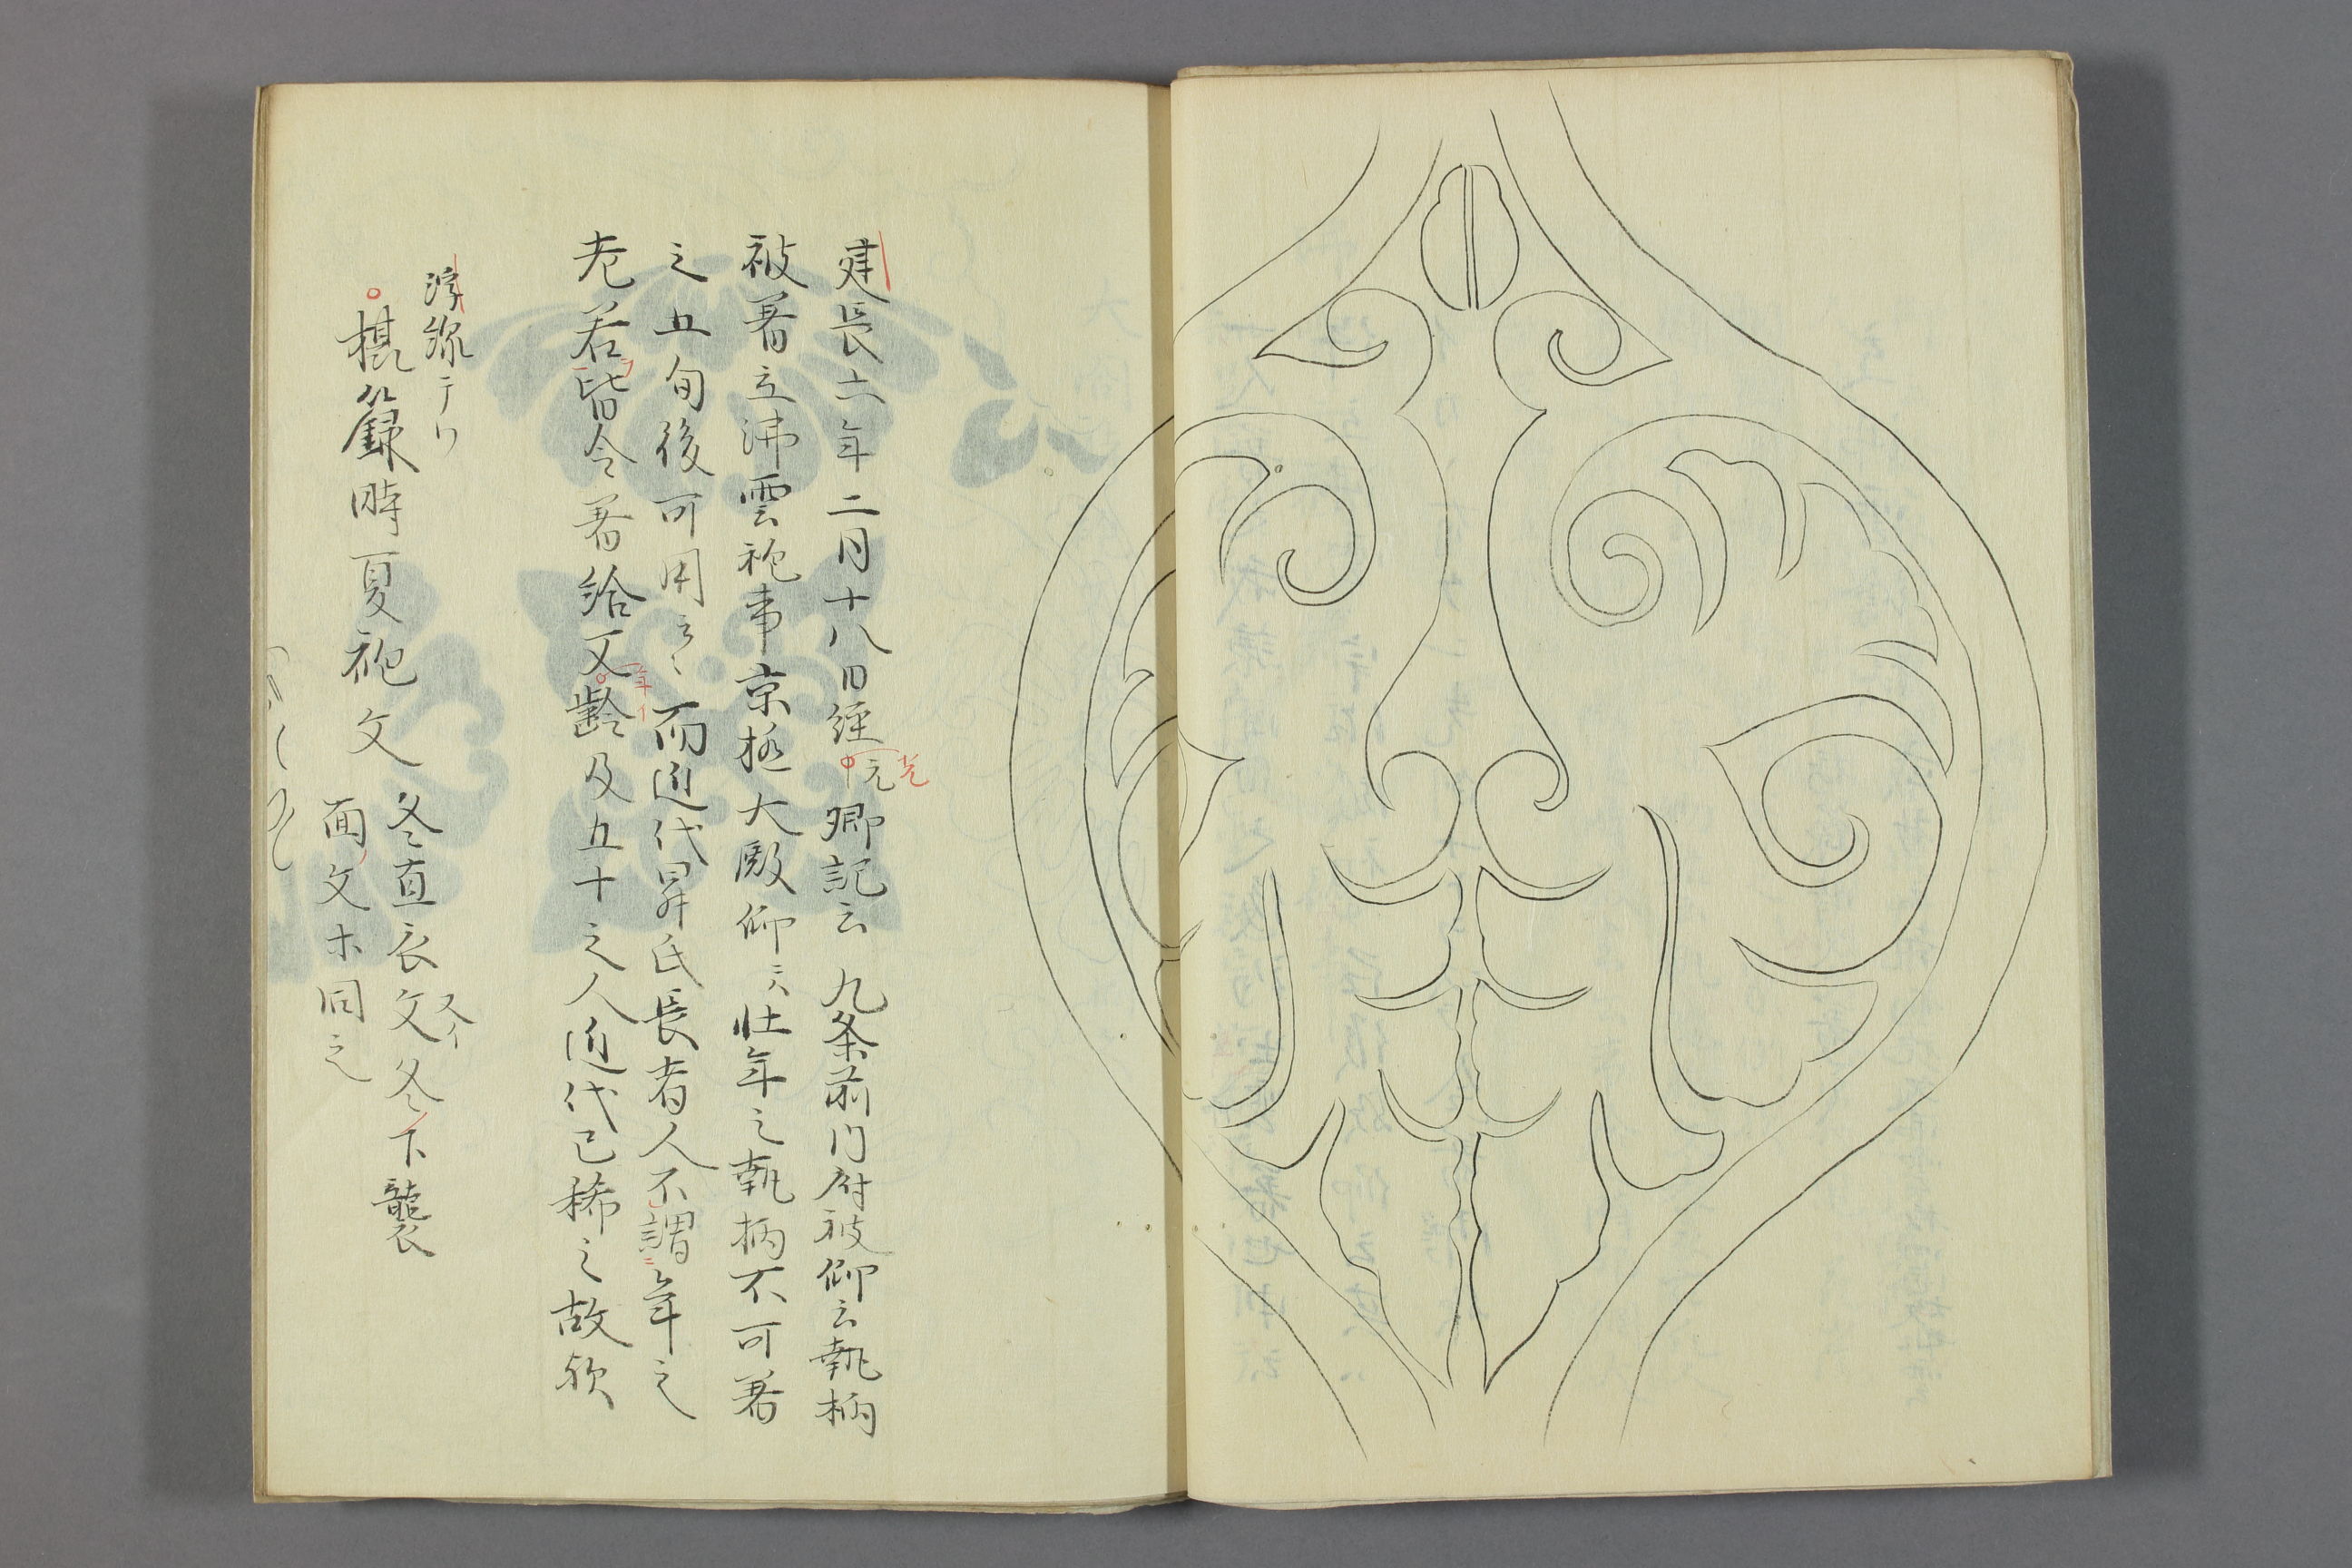 建長六年二月十八日経元卿記云九条前内府被仰云執柄
光
被著立沸雲袍事京極大殿仰云壮年之執柄不可著
之五旬後可用云々而近代昇氏長者人不謂年之
老若皆令著給又齢及五十之人近代已稀之故歟
年イ
浮線テウ
摂籙時夏袍文
冬直衣文冬下襲
又イ
面文ホ同之